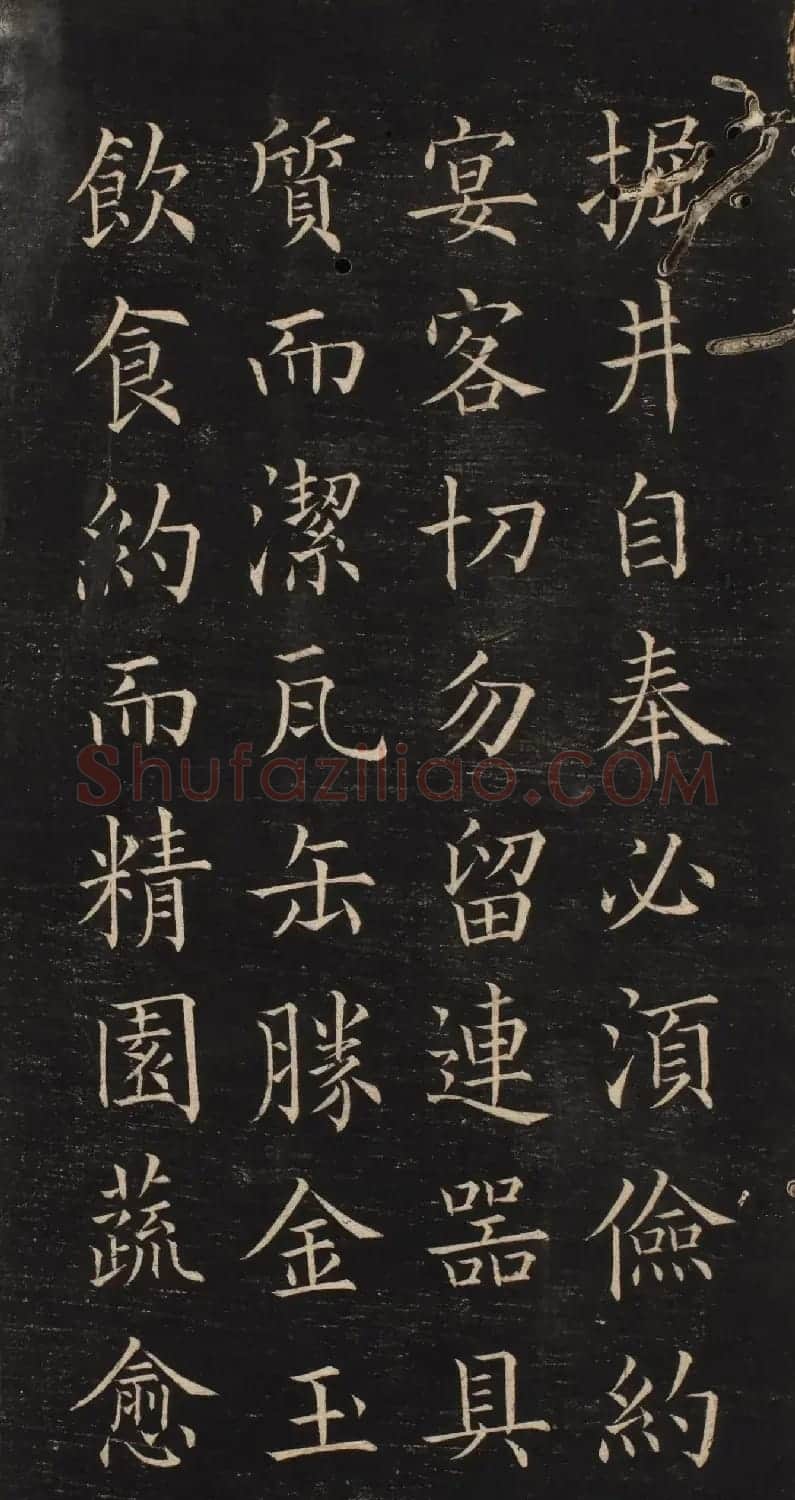 掘井自奉必湏儉約
宴客切勿留連器具
質而潔瓦缶勝金玉
飲食約而精園蔬愈
Shufaziliao.COM